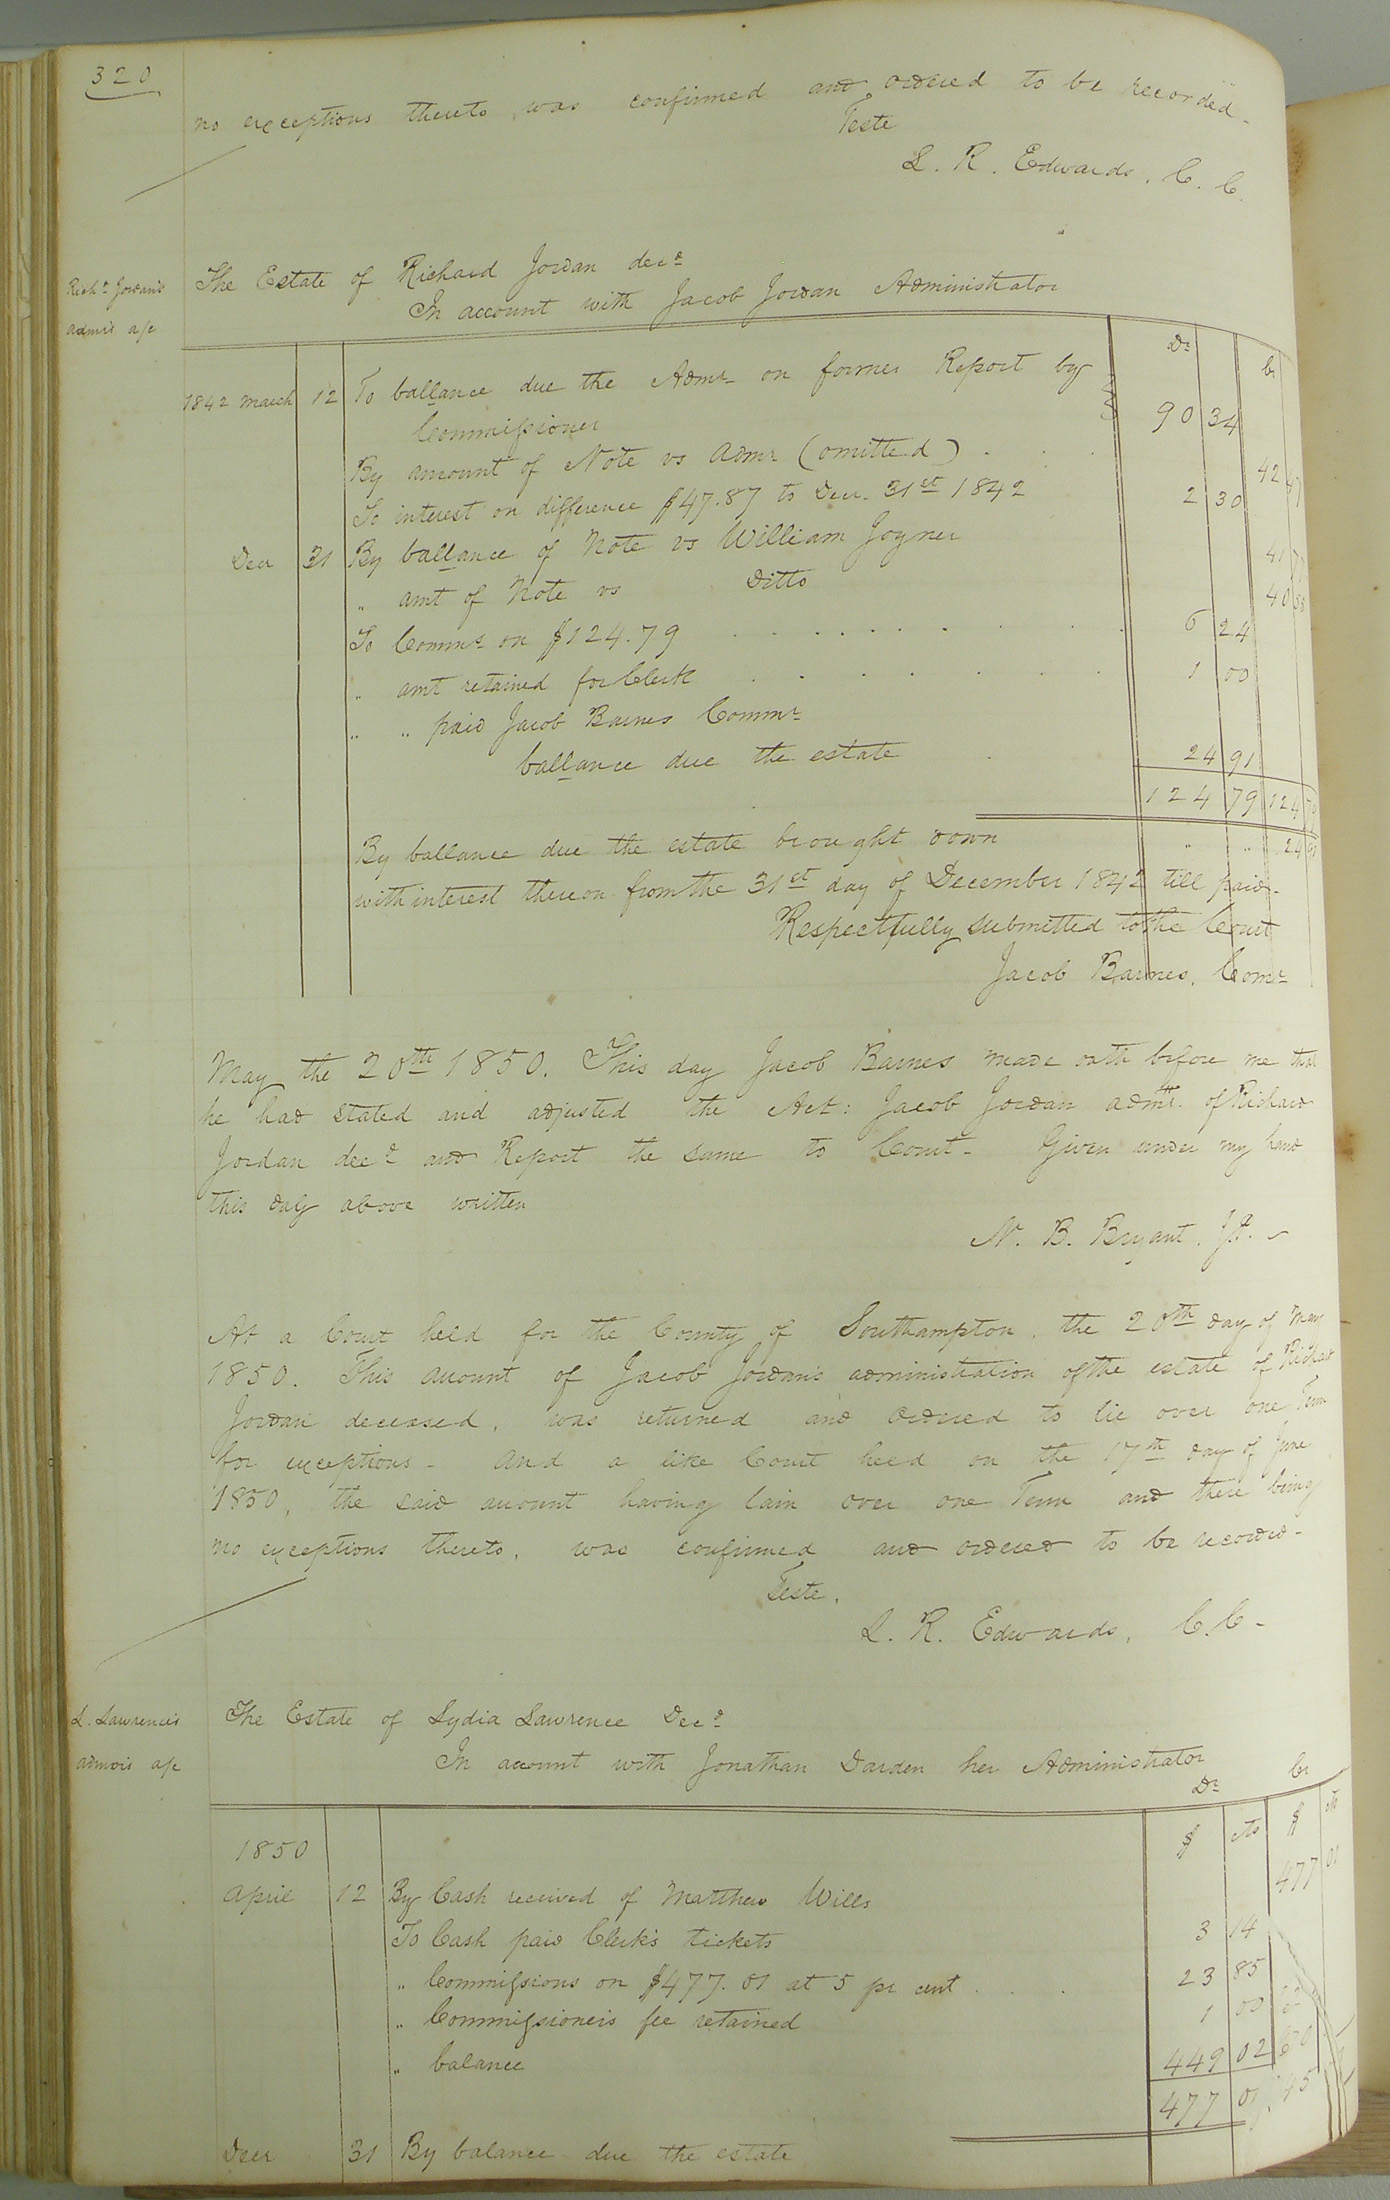 320
no exceptions thereto, was confirmed and ordered to be recorded.
Teste
L. R. Edwards, C. C.
Richd Jordan's
admrs a/c
The Estate of Richard Jordan decd
In account with Jacob Jordan Administrator
Dr Cr
1842 March 12 To ballance due the Admr on former Report by
Commissioner 90 34
By amount of Note vs Admr (omitted) 42 47
To interest on difference $47.87 to Decr. 31st 1842 2 30
Decr 31 By ballance of Note vs William Joyner 41
" amt of Note vs Ditto 40
To Comms on $124.79 6 24
" amt retained for Clerk 1 00
" " paid Jacob Barnes Commr
ballance due the estate 24 91
124 79 124 79
By ballance due the estate brought down " " 24 91
with interest thereon from the 31st day of December 1842 till paid.
Respectfully submitted to the Court
Jacob Barnes, Comr
May the 20th 1850. This day Jacob Barnes made oath before me that
he had stated and adjusted the Act: Jacob Jordan admr. of Richard
Jordan decd and Report the same to Court - Given under my hand
this day above written
N. B. Bryant, J.P.
At a Court held for the County of Southampton, the 20th day of May
1850. This account of Jacob Jordan's administration of the estate of Richard
Jordan deceased, was returned and ordered to lie over one Term
for exceptions - And a like Court held on the 17th day of June
1850, the said account having lain over one Term and there being
no exceptions thereto, was confirmed and ordered to be recorded -
Teste,
L. R. Edwards, C. C -
L. Lawrence's
admors a/c
The Estate of Lydia Lawrence Decd
In account with Jonathan Darden her Administrator
Dr Cr
1850 $ cts $ cts
April 12 By Cash received of Matthew Wills 477 01
To Cash paid Clerk's tickets 3 14
" Commissions on $477.01 at 5 pr cent 23 85
" Commissioners fee retained 1 00
" balance 449 02
477 01
Decr 31 By balance due the estate